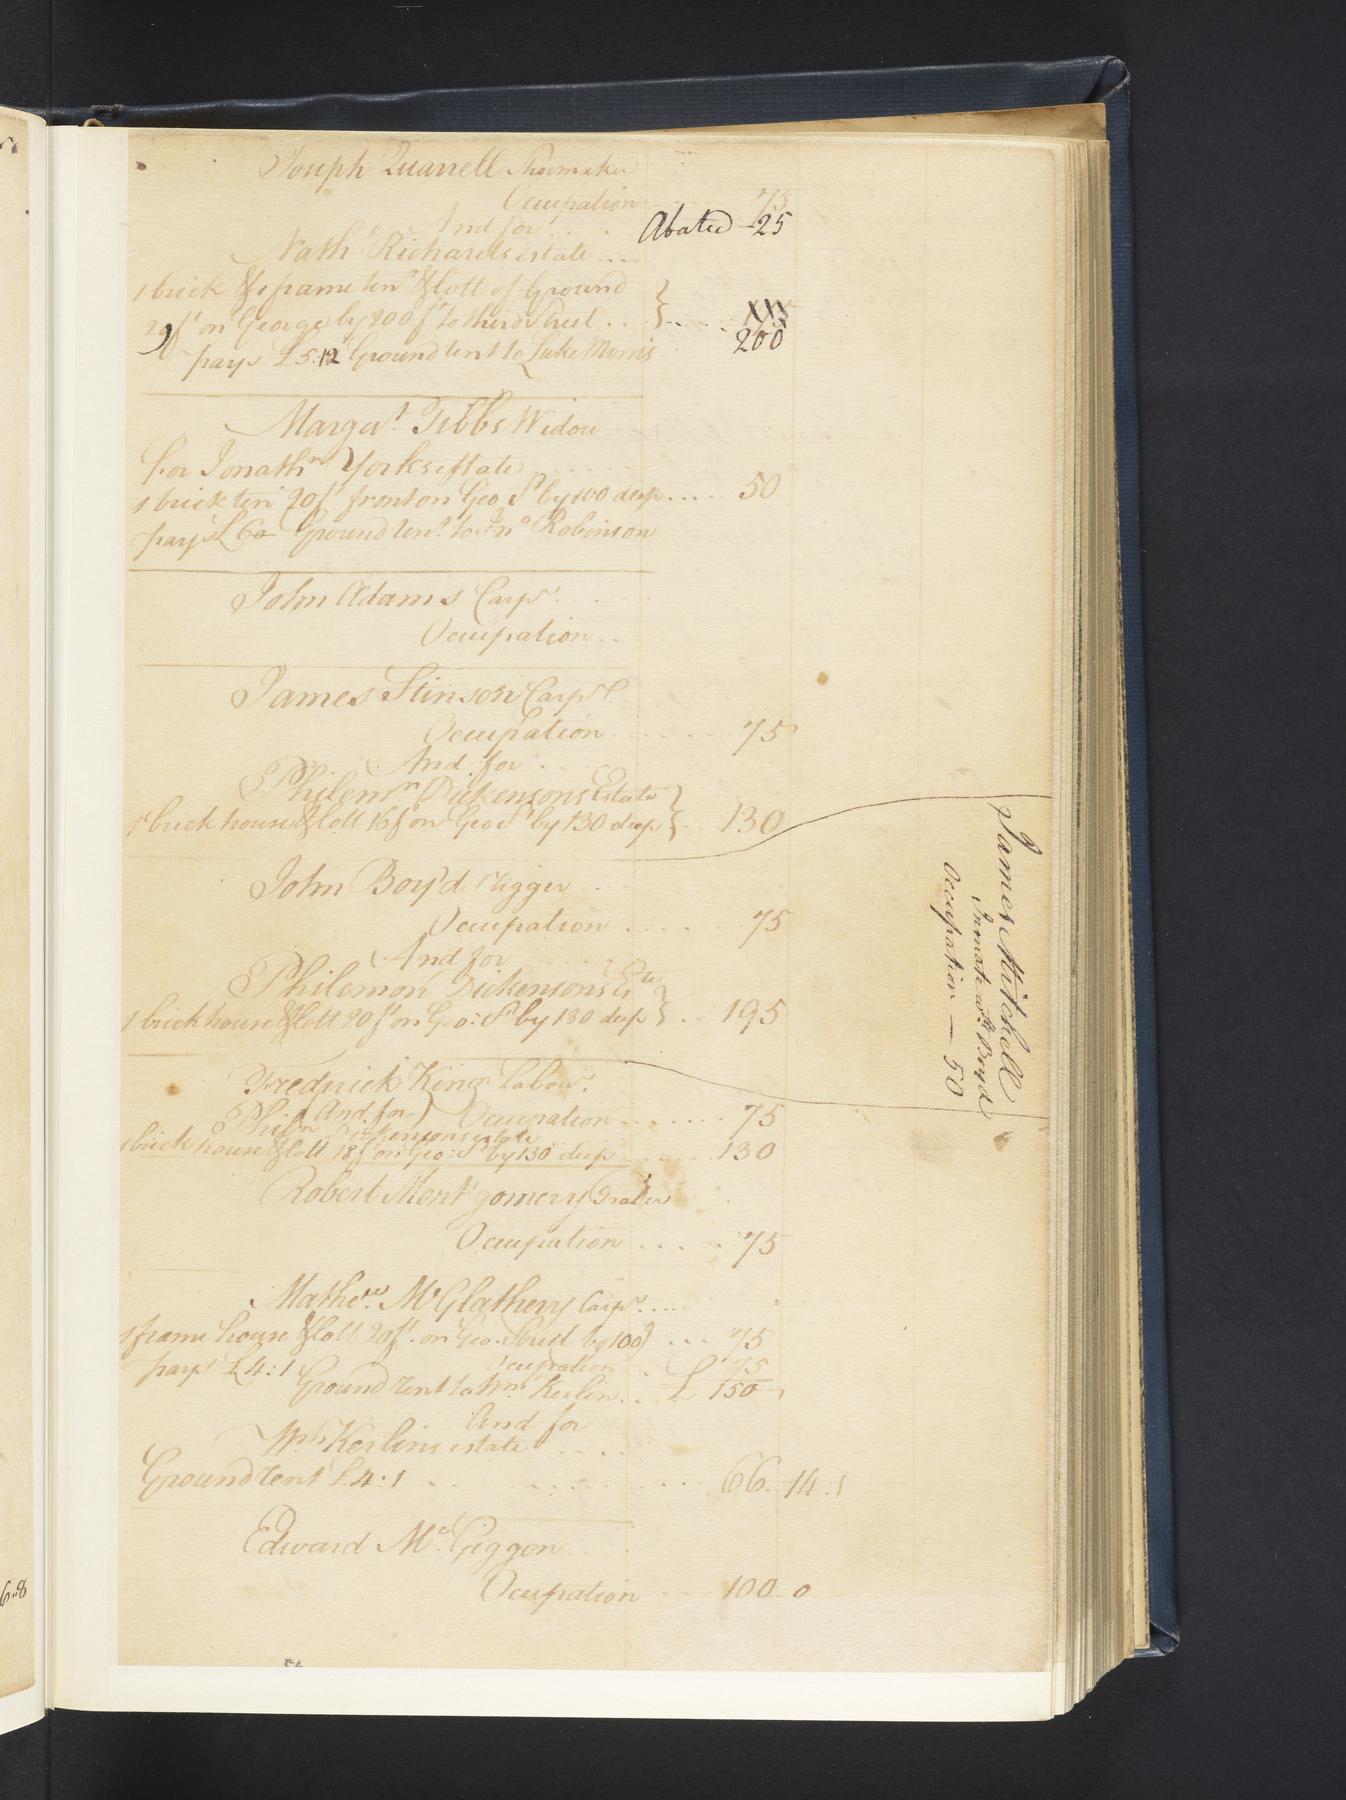 Joseph Quarrell Shoemaker
Occupation 75
And for ... Abated 25
Nath Richards estate ...
1 brick & 1 frame tent & lott of Ground
29 ft on George by 200 ft to third Street .. } .... 200
pays £5.12 Ground rent to Luke Morris
Margart. Tibbs Widow
for Jonathn Yorks estate
1 brick ten 20 ft front on Geo St by 100 deep .... 50
pays £60 Ground rent to Jno Robinson
John Adams Carpr.
Occupation ..
James Stinson Carpr
Occupation ...... 75
And for ..
Philemn Dickensons Estate
1 brick house & lott 16 f on Geo St by 130 deep } .. 130
John Boyd Rigger ..
Occupation ..... 75
And for
Philemon Dickensons Este
1 brick house & lott 20 ft on Geo: St by 130 deep } .. 195
James Mitchell
Inmate wth Boyd
Occupation — 50
Fredrick King Labour.
And for } Occupation ....... 75
Philn Dickensons estate
1 brick house & lott 18 f on Geo: St by 130 deep ...... 130
Robert Montgomery Grater
Occupation .... 75
Mathew. McGlathery Carpr ....
1 frame house & lott 20 ft. on Geo. Street by 100 } ... 75
pays £4:1 Occupation 75
Ground rent to Wm Kerlin .. £ 150
And for
Wm Kerlins estate ....
Ground rent £4:1 .. ........ 66 14:1
Edward Mc.Giggon
Occupation ... 100 0